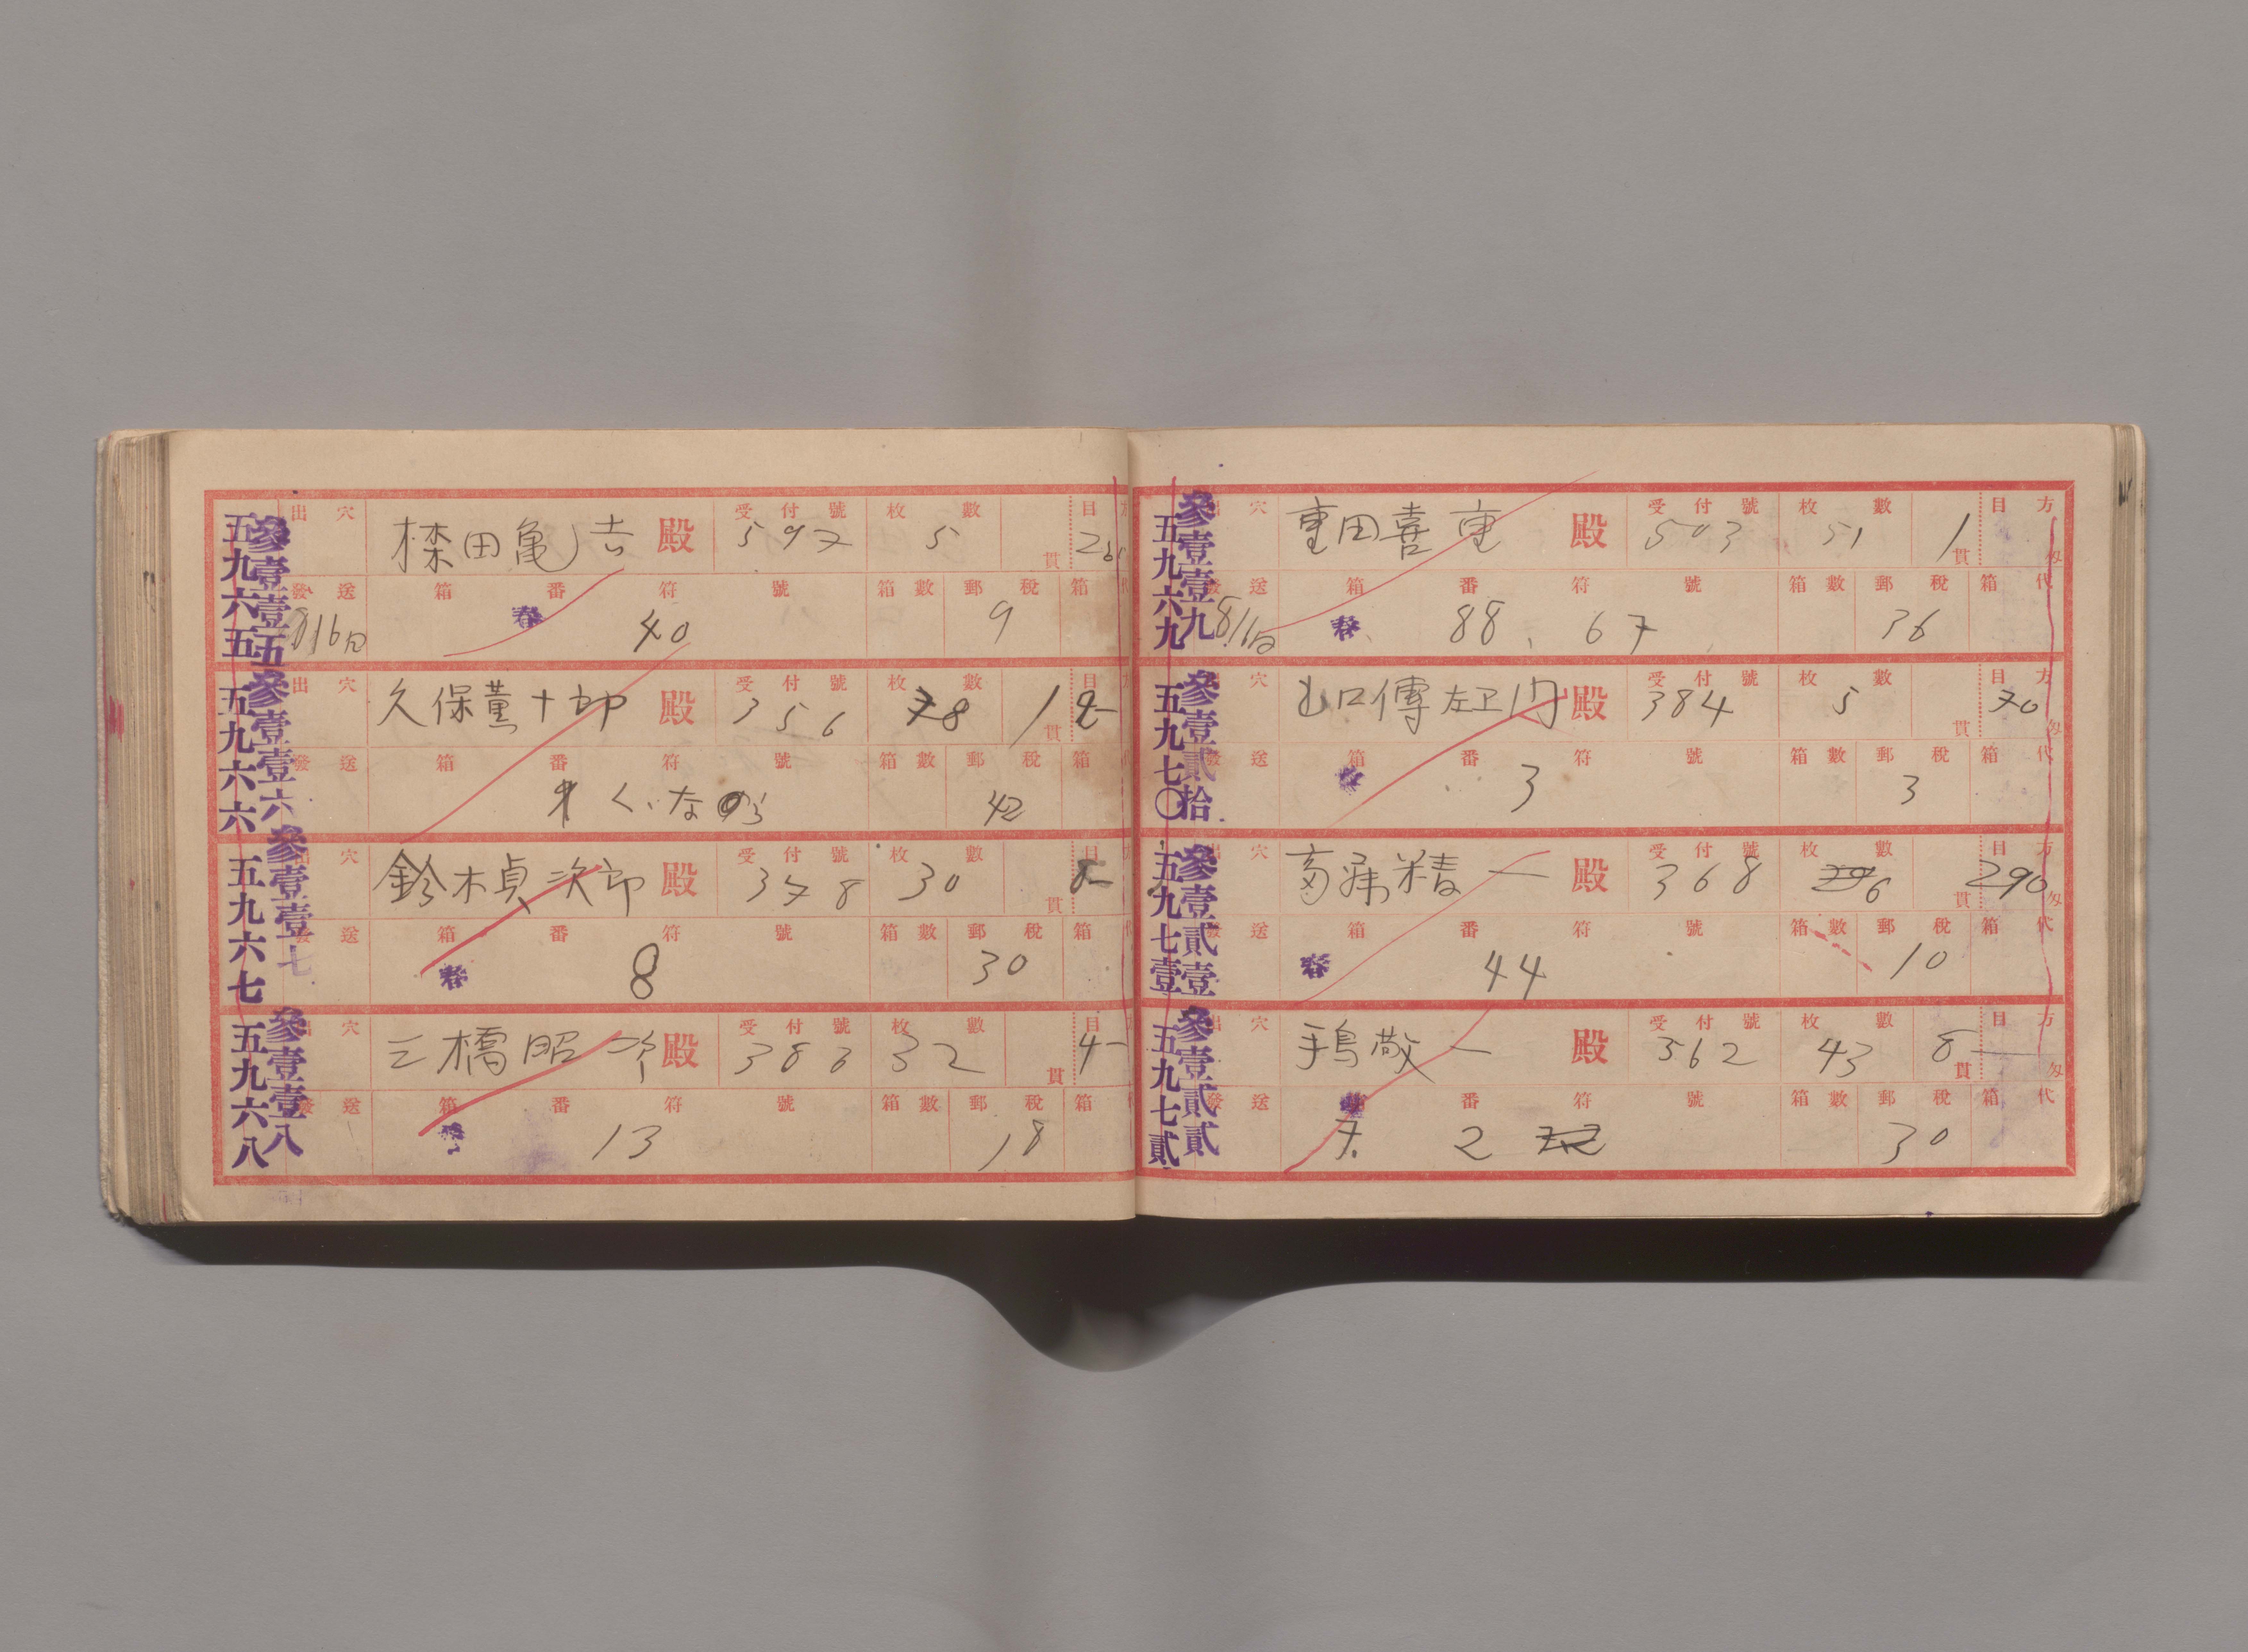 五九六五 參壹壹五
出穴 田亀吉 殿 受付號 597 枚數 5 貫 目
發送 8/16日 箱番符號 春 40 箱數 郵稅 9 箱
五九六六 參壹壹六
出穴 久保薫十郎 殿 受付號 356 枚數 8 1貫 目
發送 箱番符號 箱數 郵稅 42 箱
五九六七 參壹壹七
出穴 鈴木貞次郎 殿 受付號 378 枚數 30 貫 目 8-
發送 箱番符號 春 8 箱數 郵稅 30 箱
五九六八 參壹壹八
出穴 三橋昭 殿 受付號 383 枚數 32 貫 目 4-
發送 箱番符號 13 箱數 郵稅 18 箱
五九六九 參壹壹九
出穴 重田喜重 殿 受付號 503 枚數 51 1貫 目方 匁
發送 8/16日 箱番符號 春 88、67 箱數 郵稅 36 箱代
五九七〇 參壹貳拾
出穴 山口傳左卫门 殿 受付號 384 枚數 5 貫 目方 70 匁
發送 箱番符號 春 3 箱數 郵稅 3 箱代
五九七壹 參壹貳壹
出穴 精一 殿 受付號 368 枚數 6 貫 目方 290 匁
發送 箱番符號 春 44 箱數 郵稅 10 箱代
五九七貳 參壹貳貳
出穴 手鳥敬一 殿 受付號 362 枚數 43 8貫 目方 匁
發送 箱番符號 2 箱數 郵稅 30 箱代